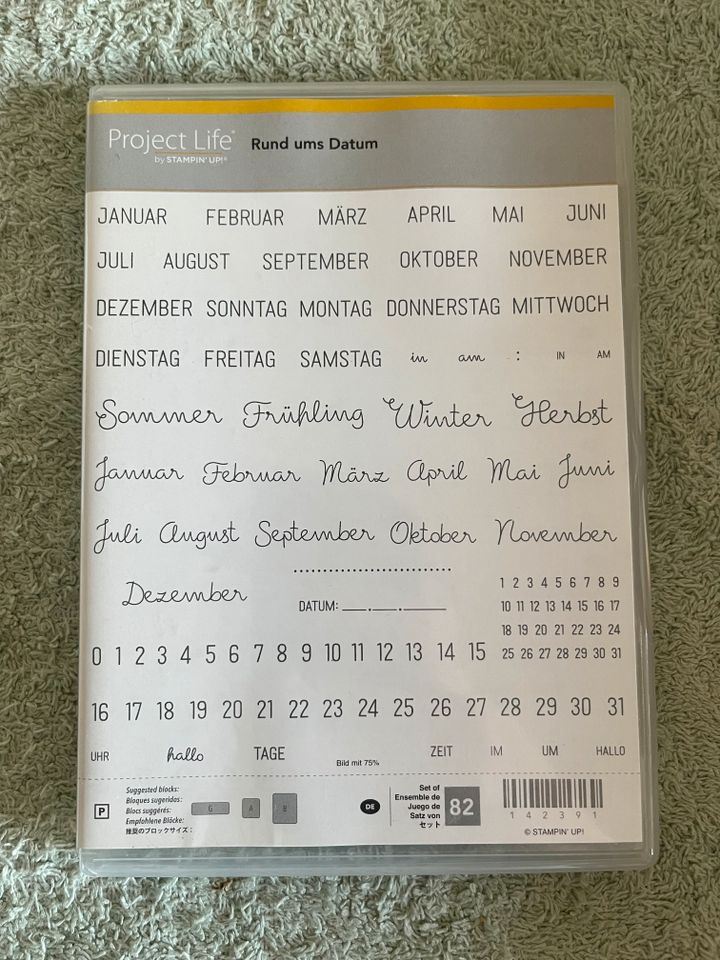 Project Life®
by STAMPIN' UP!®
Rund ums Datum
JANUAR FEBRUAR MÄRZ APRIL MAI JUNI
JULI AUGUST SEPTEMBER OKTOBER NOVEMBER
DEZEMBER SONNTAG MONTAG DONNERSTAG MITTWOCH
DIENSTAG FREITAG SAMSTAG in am : IN AM
Sommer Frühling Winter Herbst
Januar Februar März April Mai Juni
Juli August September Oktober November
Dezember
DATUM: __.__.____
1 2 3 4 5 6 7 8 9
10 11 12 13 14 15 16 17
18 19 20 21 22 23 24
25 26 27 28 29 30 31
0 1 2 3 4 5 6 7 8 9 10 11 12 13 14 15
16 17 18 19 20 21 22 23 24 25 26 27 28 29 30 31
UHR hallo TAGE ZEIT IM UM HALLO
Bild mit 75%
P
Suggested blocks:
Bloques sugeridos:
Blocs suggérés:
Empfohlene Blöcke:
推奨のブロックサイズ:
G A B
DE
Set of
Ensemble de
Juego de
Satz von
セット
82
142391
© STAMPIN' UP!